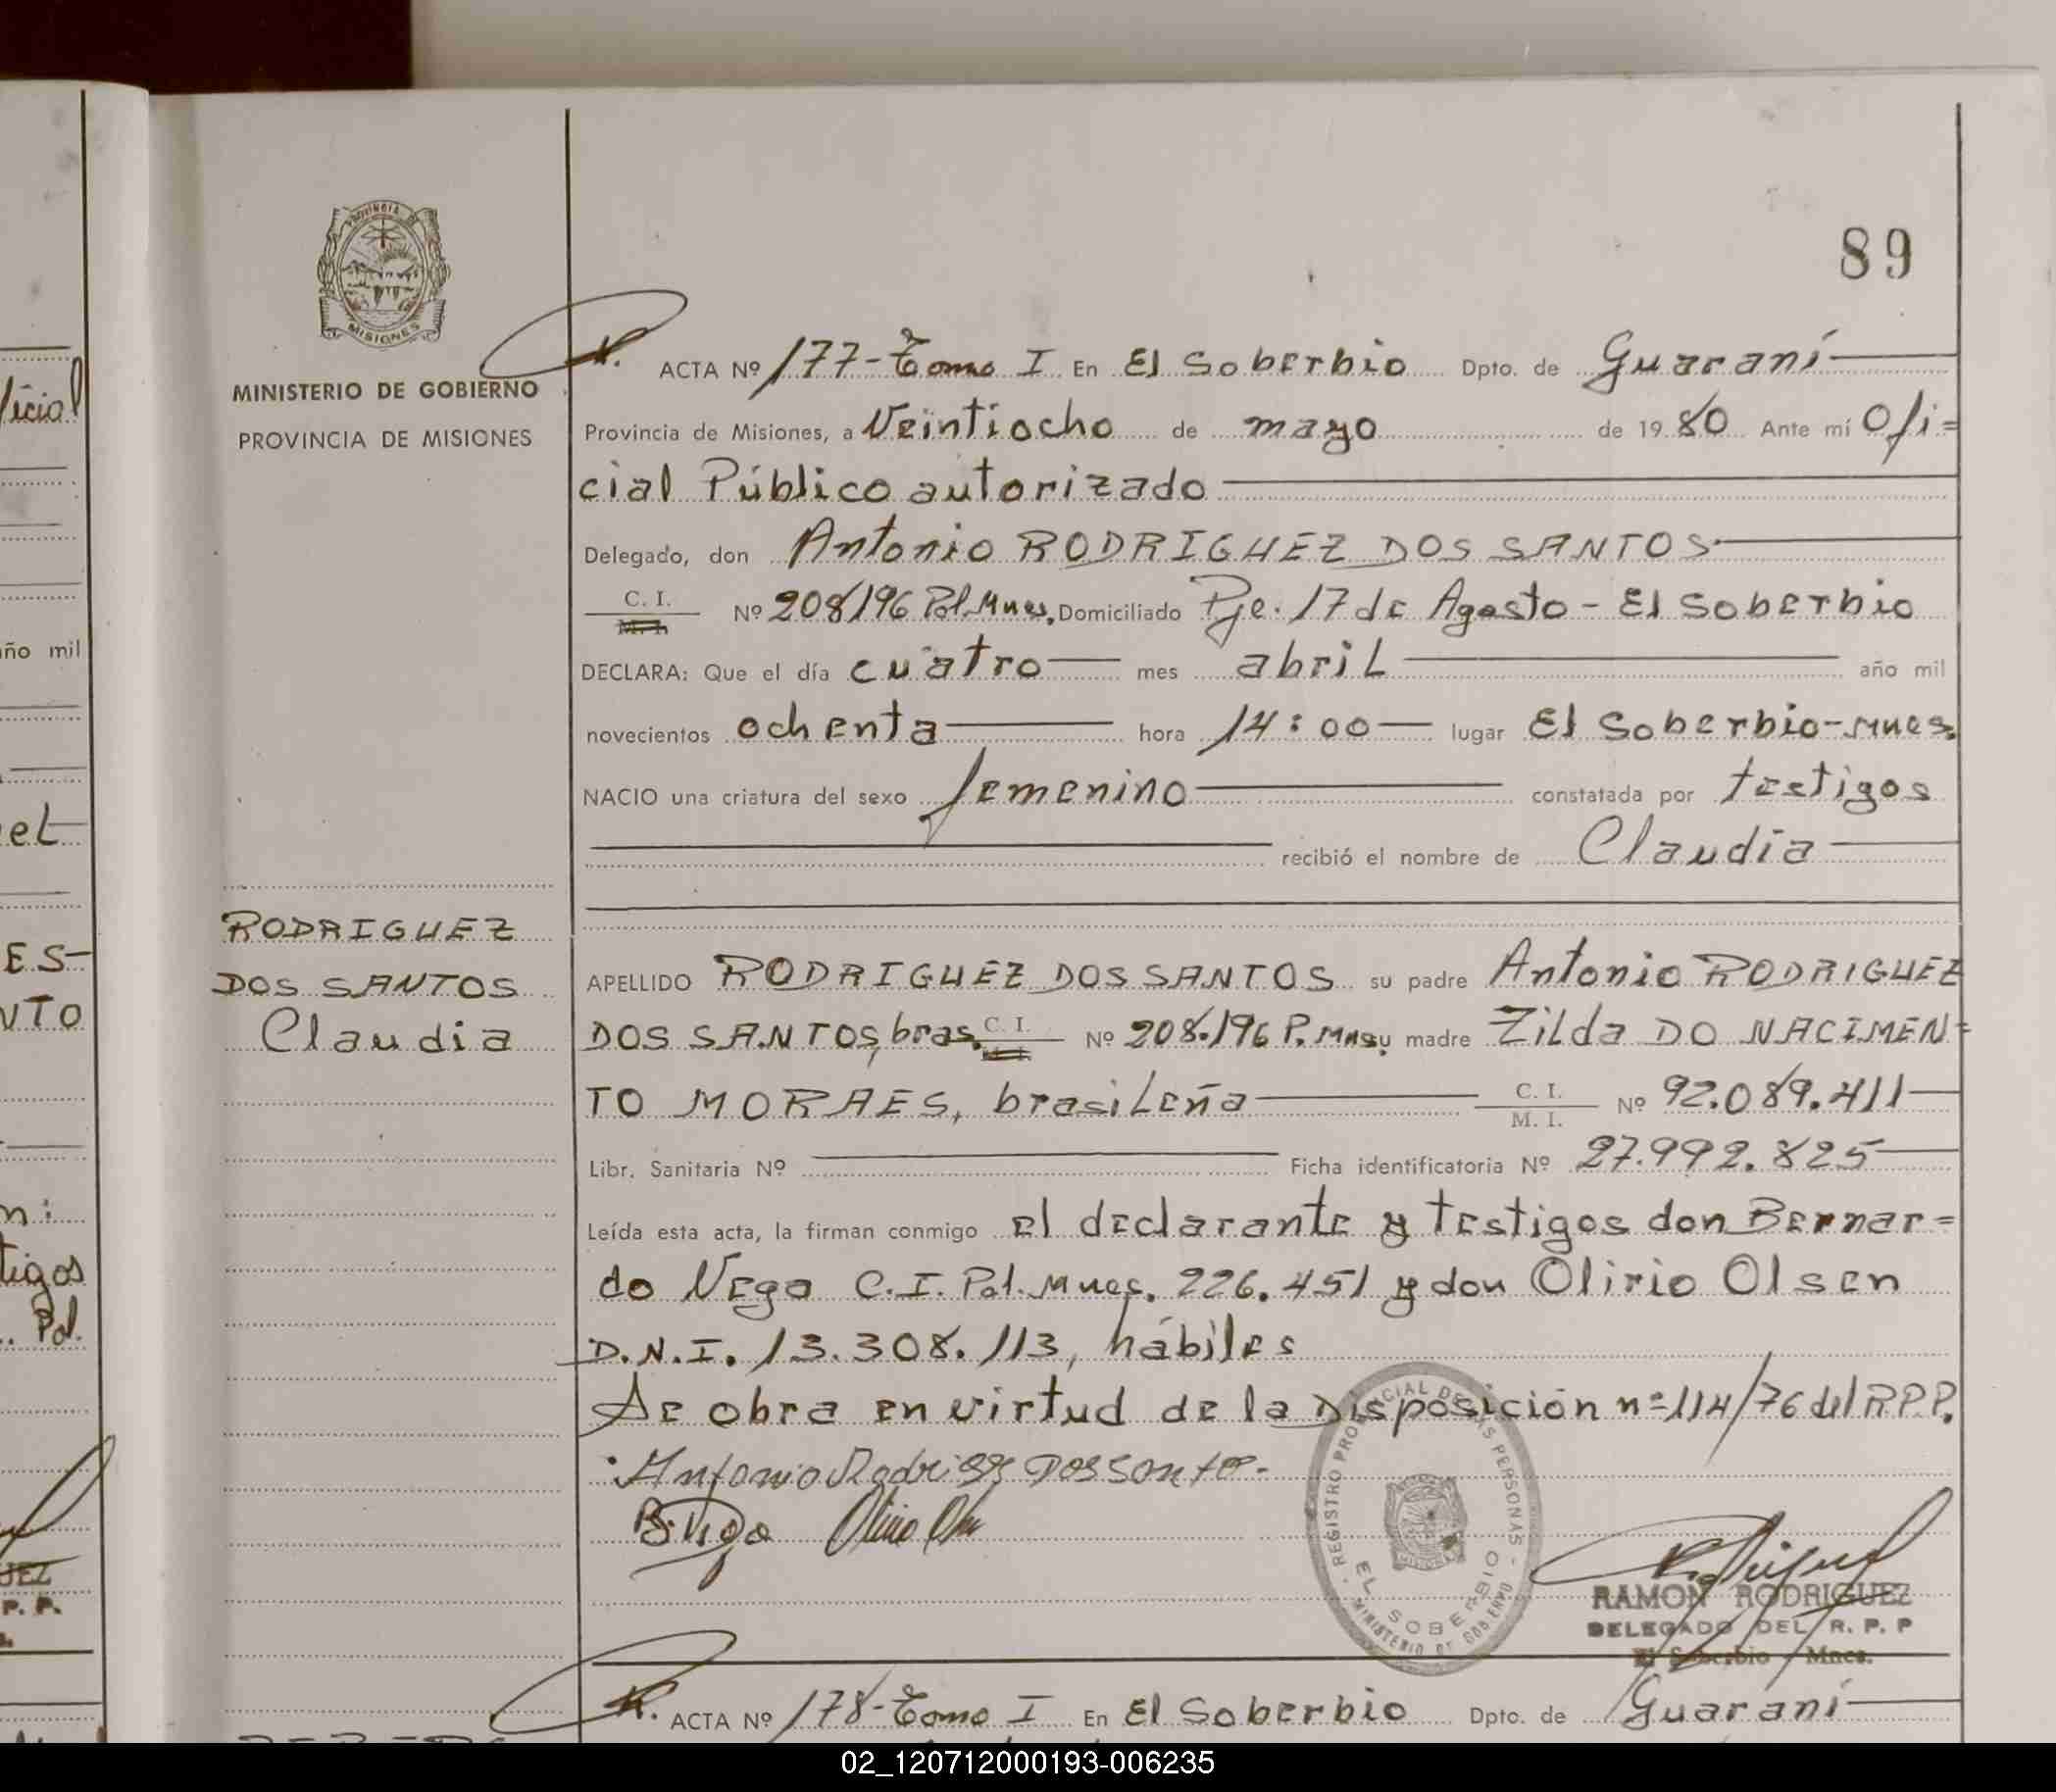 89
PROVINCIA DE
MISIONES
MINISTERIO DE GOBIERNO
PROVINCIA DE MISIONES
ACTA Nº 177-Tomo I En El Soberbio Dpto. de Guaraní
Provincia de Misiones, a Veintiocho de mayo de 1980 Ante mí Ofi=
cial Público autorizado
Delegado, don Antonio RODRIGUEZ DOS SANTOS
C. I.
M. I.
Nº 208196 Pol.Mnes. Domiciliado Pje. 17 de Agosto - El Soberbio
DECLARA: Que el día cuatro mes abril año mil
novecientos ochenta hora 14:00 lugar El Soberbio-Mnes.
NACIO una criatura del sexo femenino constatada por testigos
recibió el nombre de Claudia
RODRIGUEZ
DOS SANTOS
Claudia
APELLIDO RODRIGUEZ DOS SANTOS su padre Antonio RODRIGUEZ
DOS SANTOS, bras. C. I. Nº 208.196 P. Mns y madre Zilda DO NACIMEN=
TO MORAES, brasileña C. I. Nº 92.089.411
M. I.
Libr. Sanitaria Nº Ficha identificatoria Nº 27.992.825
Leída esta acta, la firman conmigo el declarante y testigos don Bernar=
do Vega C.I. Pol. Mnes. 226.451 y don Olirio Olsen
D.N.I. 13.308.113, hábiles
Se obra en virtud de la Disposición nº 114/76 del R.P.P.
Antonio Rodrigz Dos Santos
B. Vega
REGISTRO PROVINCIAL DE LAS PERSONAS
EL SOBERBIO
MINISTERIO DE GOBIERNO
RAMON RODRIGUEZ
DELEGADO DEL R. P. P
El Soberbio - Mnes.
ACTA Nº 178-Tomo I En El Soberbio Dpto. de Guaraní
ficial
año mil
el
ES-
NTO
n:
tigos
Pol.
UEZ
P. P.
02_120712000193-006235